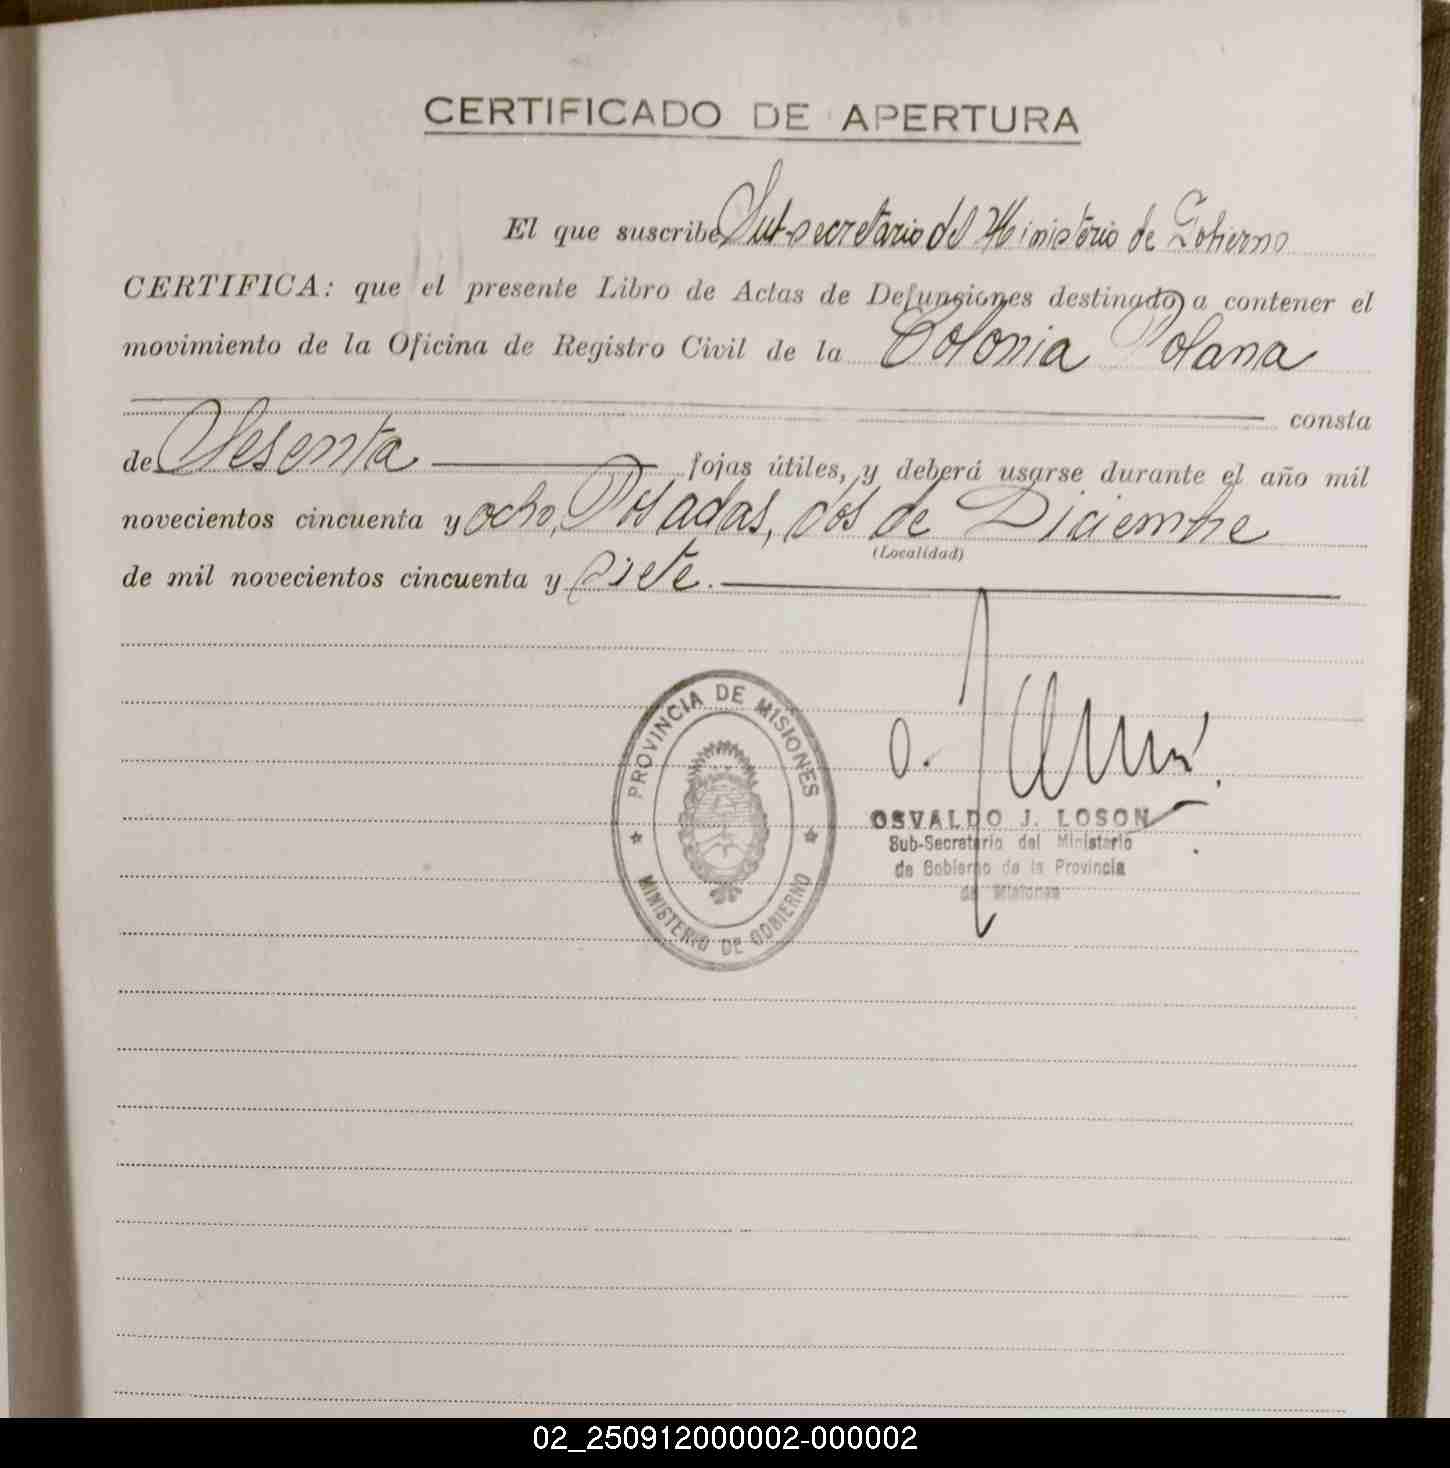 CERTIFICADO DE APERTURA
El que suscribe Sub-secretario del Ministerio de Gobierno
CERTIFICA: que el presente Libro de Actas de Defunsiones destinado a contener el
movimiento de la Oficina de Registro Civil de la Colonia Polana
consta
de Sesenta fojas útiles, y deberá usarse durante el año mil
novecientos cincuenta y ocho, Posadas, dos de Diciembre
(Localidad)
de mil novecientos cincuenta y siete.
PROVINCIA DE MISIONES
MINISTERIO DE GOBIERNO
OSVALDO J. LOSON
Sub-Secretario del Ministerio
de Gobierno de la Provincia
de Misiones
02_250912000002-000002